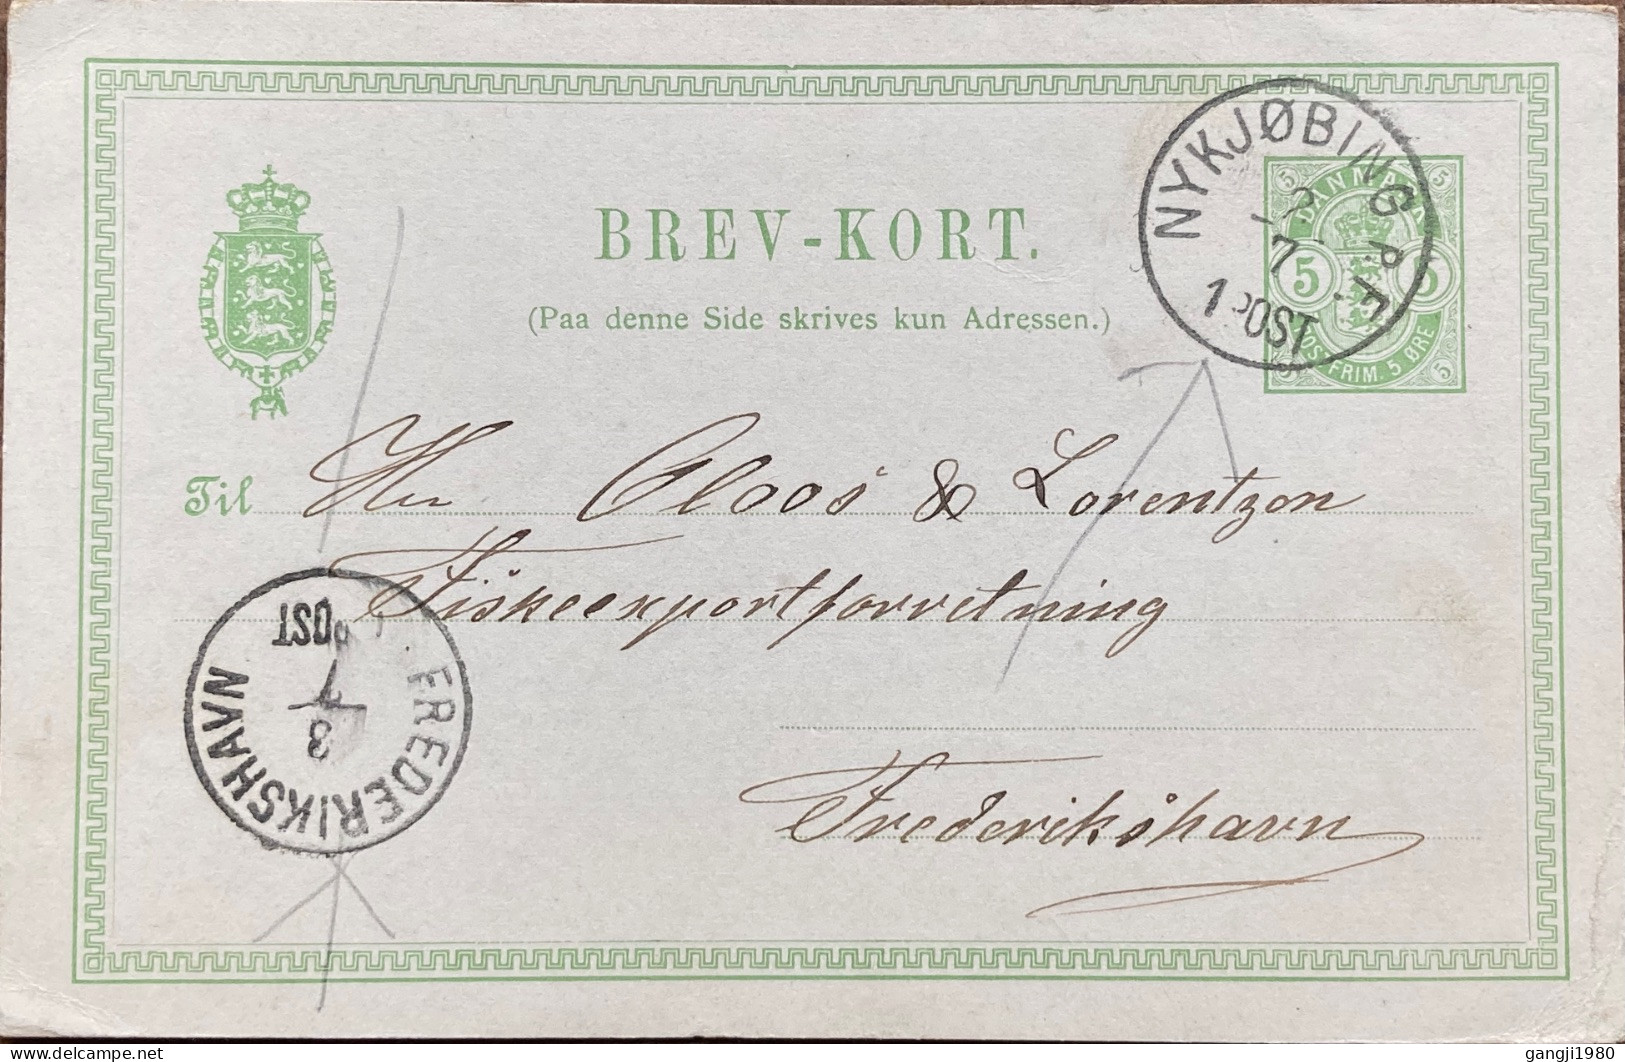 BREV-KORT.
(Paa denne Side skrives kun Adressen.)
NYKJØBING P. F.
2
7
1 POST
5 5 5 5
DANMARK
5 5
POSTFRIM. 5 ØRE
Til Hrr Cloos & Lorentzon
Fiskeexportforretning
Frederikshavn
FREDERIKSHAVN
3
7
POST
delcampe.net
gangji1980